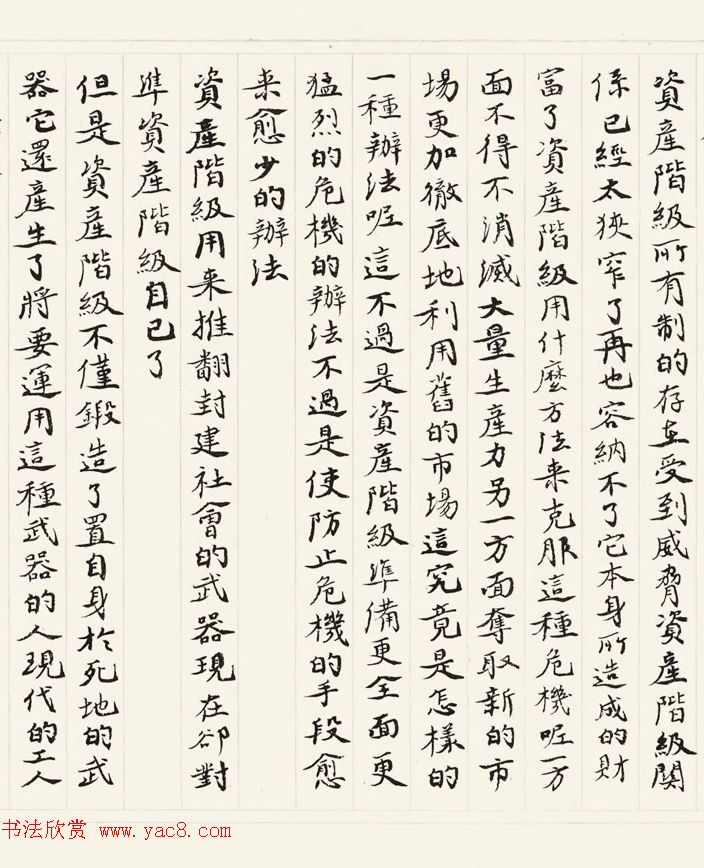 資產階級所有制的存在受到威脅資產階級関
係已經太狹窄了再也容納不了它本身所造成的財
富了資產階級用什麼方法来克服這種危機呢一方
面不得不消滅大量生產力另一方面奪取新的市
場更加徹底地利用舊的市場這究竟是怎樣的
一種辦法呢這不過是資產階級準備更全面更
猛烈的危機的辦法不過是使防止危機的手段愈
来愈少的辦法
資產階級用来推翻封建社會的武器現在卻對
準資產階級自己了
但是資產階級不僅鍛造了置自身於死地的武
器它還產生了將要運用這種武器的人現代的工人
书法欣赏 www.yac8.com